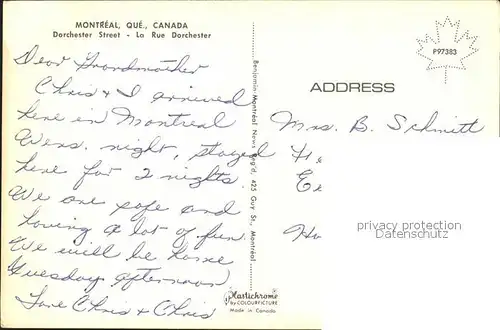 MONTRÉAL, QUÉ., CANADA
Dorchester Street - La Rue Dorchester
Dear Grandmother
Chris & I arrived
here in Montreal
Wens. night, stayed
here for 2 nights.
We are safe and
having a lot of fun.
We will be home
Tuesday afternoon
Love Chris & Chris
Benjamin Montréal News Reg'd. 425 Guy St. Montréal
Plastichrome
by COLOURPICTURE
Made in Canada
P97383
ADDRESS
Mrs. B. Schmitt
privacy protection
Datenschutz